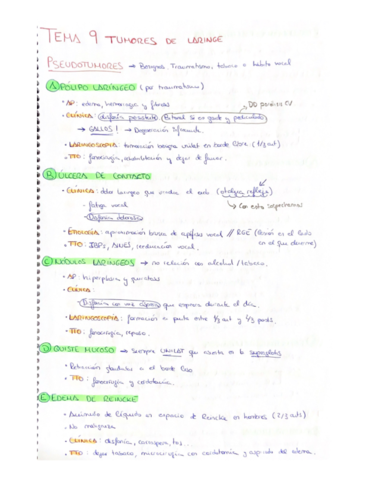 TEMA 9 TUMORES DE LARINGE
PSEUDOTUMORES → Benignos. Traumatismo, tabaco o hábito vocal
A) PÓLIPO LARÍNGEO (por traumatismo)
• AP: edema, hemorragia y fibrosis
DD parálisis CV
• CLÍNICA: disfonía persistente
→ GALLOS! → Degeneración
• LARINGOSCOPIA: formación benigna unilat en borde libre (1/3 ant)
• TTO: fonocirugía, rehabilitación y dejar de fumar.
B) ÚLCERA DE CONTACTO
• CLÍNICA: dolor laríngeo que irradia al oído (otalgia refleja)
→ Con esto sospechamos
• fatiga vocal
• Disfonía
• ETIOLOGÍA: aproximación brusca de apófisis vocal // RGE (llamar en el lado en el que duerme)
• TTO: IBPs, AINES, reeducación vocal.
C) NÓDULOS LARÍNGEOS → no relación con alcohol / tabaco.
• AP: hiperplasia y queratosis
• CLÍNICA:
• Disfonía con voz áspera que empeora durante el día.
• LARINGOSCOPIA: formación en punta entre 1/3 ant y 2/3 post.
• TTO: fonocirugía, reposo.
D) QUISTE MUCOSO → Siempre UNILAT que asienta en la supraglotis
• Retención glandular en el borde libre
• TTO: fonocirugía y cordotomía.
E) EDEMA DE REINKE
• Acúmulo de líquido en espacio de Reinke en hombres (2/3 ant)
• No maligniza
• CLÍNICA: disfonía, carraspera, tos.
• TTO: dejar tabaco, microcirugía con cordotomía y aspirado del edema.